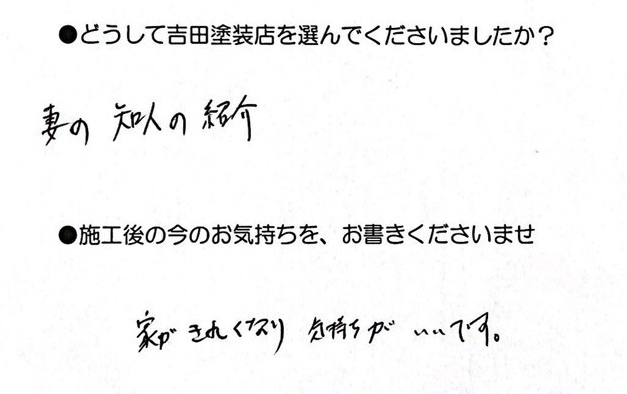 ●どうして吉田塗装店を選んでくださいましたか？
妻の 知人の 紹介
●施工後の今のお気持ちを、お書きくださいませ
家が きれくなり 気持ちが いいです。